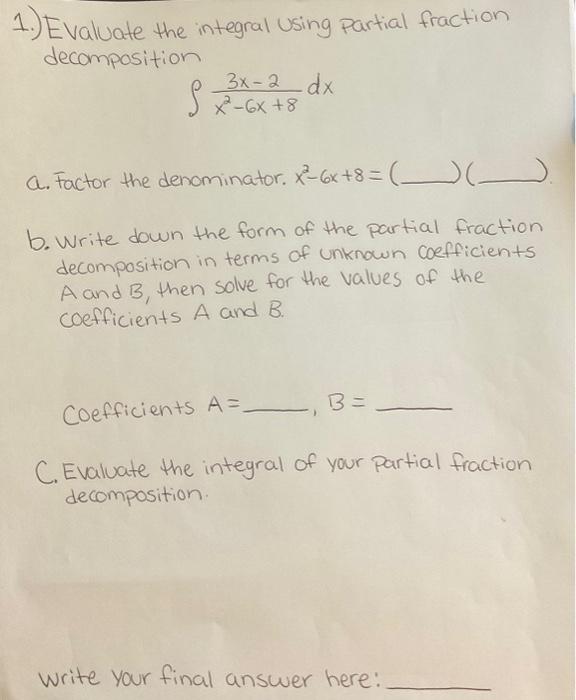 1.) Evaluate the integral using partial fraction
decomposition
∫ (3x-2)/(x²-6x+8) dx
a. Factor the denominator. x²-6x+8 = (___)(___).
b. Write down the form of the partial fraction
decomposition in terms of unknown coefficients
A and B, then solve for the values of the
coefficients A and B.
Coefficients A=____, B = ____
C. Evaluate the integral of your partial fraction
decomposition.
Write your final answer here: ____